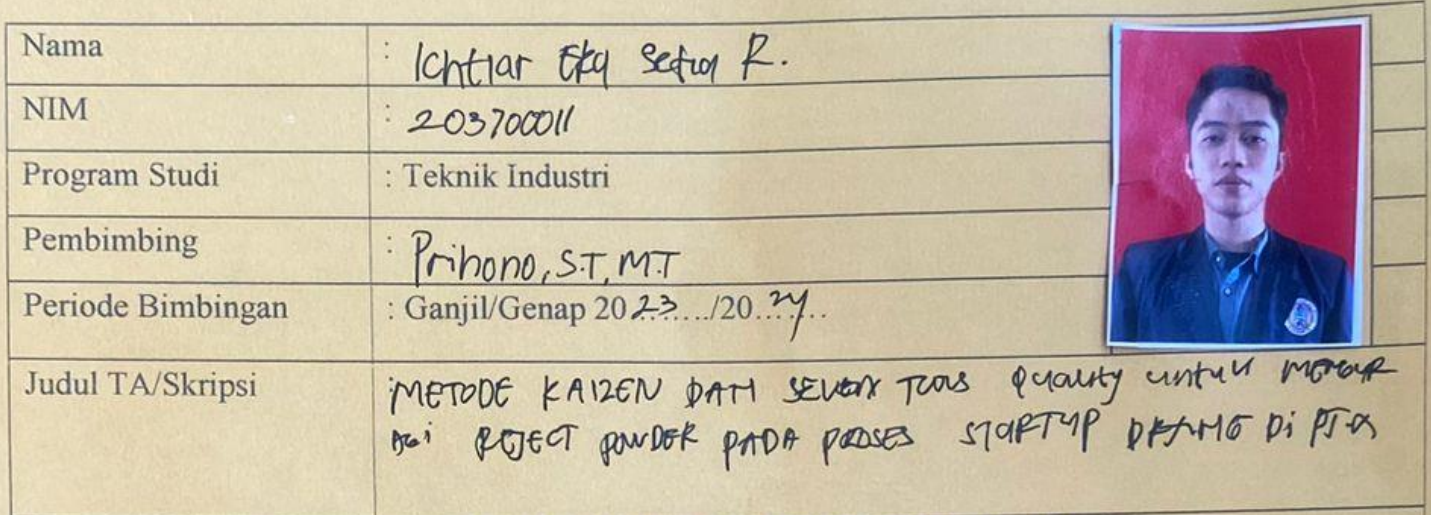 Nama : Ichtiar Eka Setia R.
NIM : 203700011
Program Studi : Teknik Industri
Pembimbing : Prihono, S.T, M.T
Periode Bimbingan : Ganjil/Genap 2023..../20.24...
Judul TA/Skripsi : METODE KAIZEN DAN SEVEN TOOLS Quality untuk
REJECT POWDER PADA PROSES STARTUP DI PT